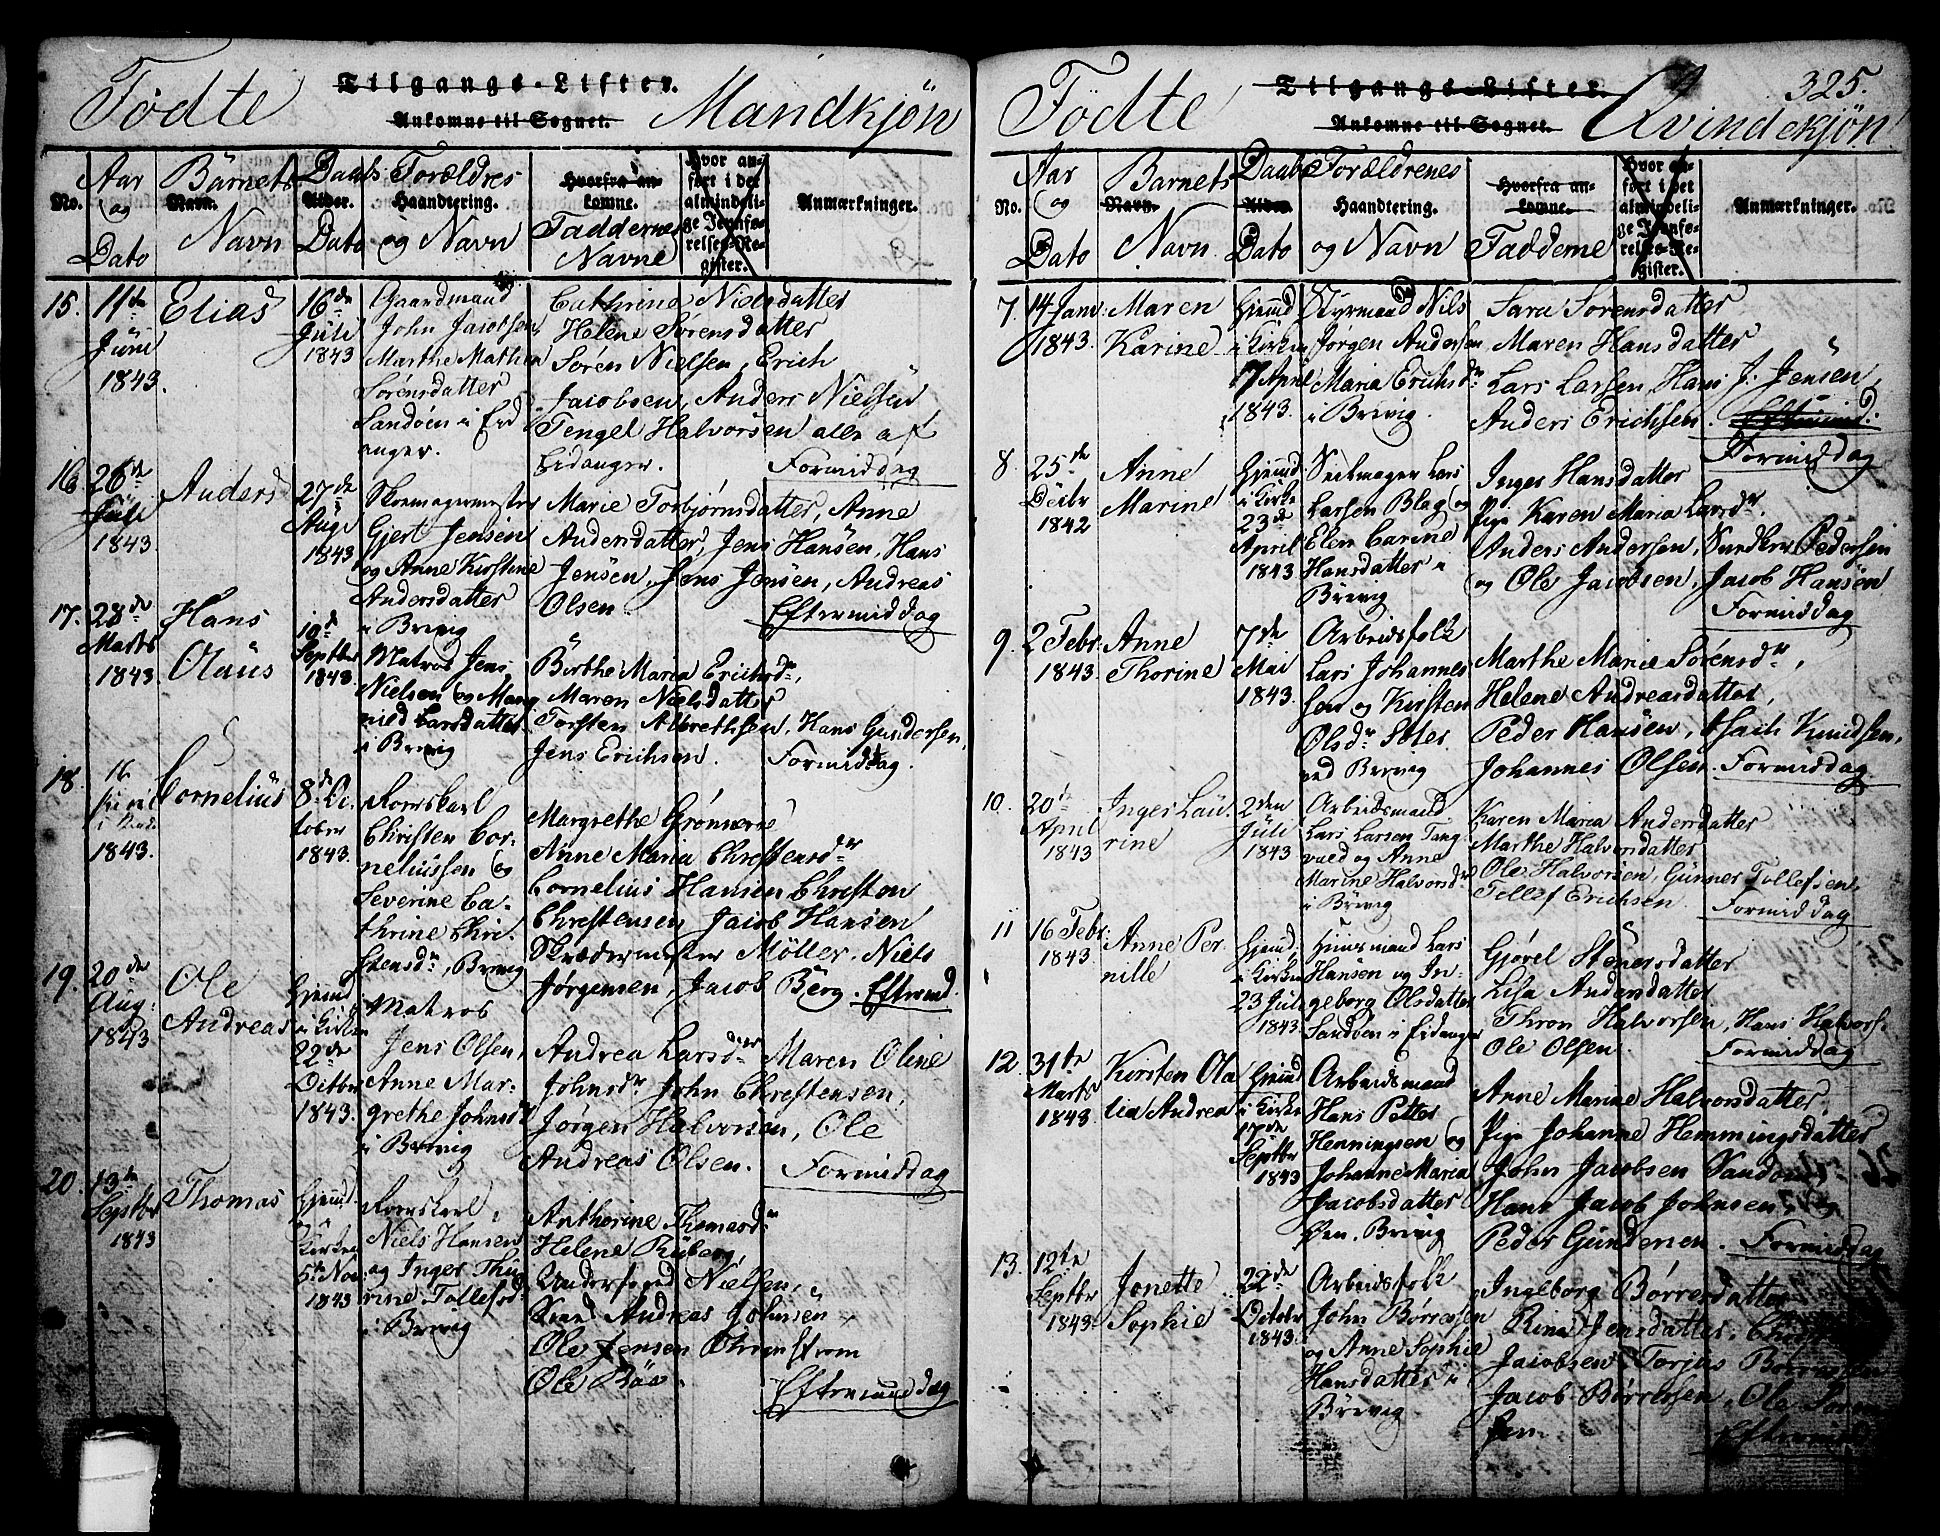 Tilgangs-Lister.
Ankomne til Sognet.
Fødte Mandkjøn
No.
Aar og Dato
Barnets Navn
Daabs Dato
Alder.
Forældres
Haandtering.
og Navn
Hvorfra ankomne.
Faddernes Navne
Hvor anført i det almindelige Jevnførelses-Register.
Anmærkninger.
15. 11te Juni 1843.
Elias
16de Juli 1843
Gaardmand
John Jacobsen
Marthe Mathea
Sørensdatter
Sandøen i Eidanger.
Cathrine Nielsdatter
Helene Sørensdatter
Søren Nielsen, Erich
Jacobsen, Anders Nielsen
Tengel Halvorsen alle af
Eidanger. Formiddag
16 26de Juli 1843
Anders
27de Augs 1843
Skomagermester
Gjert Jensen
og Anne Kirstine
Andersdatter
i Brevig
Marie Torbjørnsdatter, Anne
Andersdatter, Jens Hansen, Hans
Jensen, Jens Jensen, Andreas
Olsen. Eftermiddag
17. 28de Marts 1843
Hans Olaus
10de Septbr 1843
Matros Jens
Nielsen og
Larsdatter
i Brevig
Birthe Maria Erichsdr,
Maren Nielsdatter
Torsten Albrethsen, Hans Gundersen,
Jens Erichsen. Formiddag.
18. 16 1843.
Cornelius
8de October 1843.
Romskarl
Christen Cornelius­sen og
Severine Cathrine Christensdr, Brevig
Margrethe Grønnerøe
Anne Maria Christensdr
Cornelius Hansen Christen
Christensen, Jacob Hansen
Skrædermester Möller. Niels
Jørgensen, Jacob Berg. Eftermd.
19. 20de Aug. 1843
Ole Andreas
Hjemd i Kirken 22de Octbr 1843.
Matros
Jens Olsen,
Anne Margrethe Johnsdr
i Brevig
Andrea Larsdr Maren Oline
Johnsdr John Christensen,
Jørgen Halvorsen, Ole
Andreas Olsen. Formiddag
20. 13de Septbr 1843
Thomas
Hjemd og Kirken 5te Nov 1843
Romskarl
Niels Hansen
og Inger Thurine Tollefsdr
i Brevig
Anthorine Thomasdr
Helene Ryberg,
Underfoged Nielsen,
Andreas Johnsen
Ole Jensen
Ole
Eftermiddag
Tilgangs-Lister. 325.
Ankomne til Sognet.
Fødte Qvindekjøn
No.
Aar og Dato
Barnets Navn
Daabs Dato
Alder.
Forældrenes
Haandtering.
og Navn
Hvorfra ankomne.
Fadderne
Hvor anført i det almindelige Jevnførelses-Register.
Anmærkninger.
7. 14 Janr. 1843.
Maren Karine
Hjemd i Kirken 17 April 1843.
Styrmand Nils
Jørgen Andersen
Maria Erichsdr
i Brevig.
Sara Sorensdatter
Maren Hansdatter
Lars Larsen, Hans J. Jensen,
Anders Erichsen.
Formiddag
8 25de Decbr 1842
Anne Marine
Hjemd i Kirke 23de April 1843
Seilmager Lars
Larsen Blag og
Elen Carine
Hansdatter i
Brevig
Inger Hansdatter
Pige Karen Maria Larsdr.
Anders Andersen, Pedersen
og Ole Jacobsen, Jacob Hansen
Formiddag
9. 2 Febr. 1843.
Anne Thorine
7de Mai 1843
Arbeidsfolk
Lars Johannessen og Kirsten
Olsdr
ved Brevig
Marthe Marie Sørensdr,
Helene Andreasdatter,
Peder Hansen, Isach Knudsen,
Johannes Olsen. Formiddag
10. 20de April 1843
Inger Laurine
2den Juli 1843
Arbeidsmand
Lars Larsen Tangvald og Anne
Marine Halvorsdr
i Brevig
Karen Maria Andersdatter
Marthe Halvorsdatter
Ole Halvorsen, Gunner Tollefsen,
Tollef Erichsen. Formiddag
11 16 Febr. 1843.
Anne Pernille
Hjemd. i Kirken 23 Juli 1843.
Huusmand Lars
Hansen og Ingeborg Olsdatter
Sandøen i Eidanger
Gjørel Stenersdatter
Lisa Andersdatter
Thron Halvorsen, Hans Halvors.
Ole Olsen. Formiddag
12. 31te Marts 1843
Kirsten Olalia Andrea
Hjemd i Kirke 17de Septbr 1843
Arbeidsmand
Hans Petter
Henningsen og
Johanne Maria
Jacobsdatter
Øen, Brevig
Anne Marine Halvorsdatter,
Pige Johanne Hemmingsdatter
John Jacobsen Sandøen,
Hans Jacob Johnsen,
Peder Gundersen. Formiddag
13. 12te Septbr 1843.
Jonette Sophie
22de Octobr 1843.
Arbeidsfolk
John Børresen
og Anne Sophie
Hansdatter i
Brevig
Ingeborg Børresdatter
Rina Jensdatter,
Jacobsen, Torjus Børresen
Jacob Børresen, Ole
Eftermidd